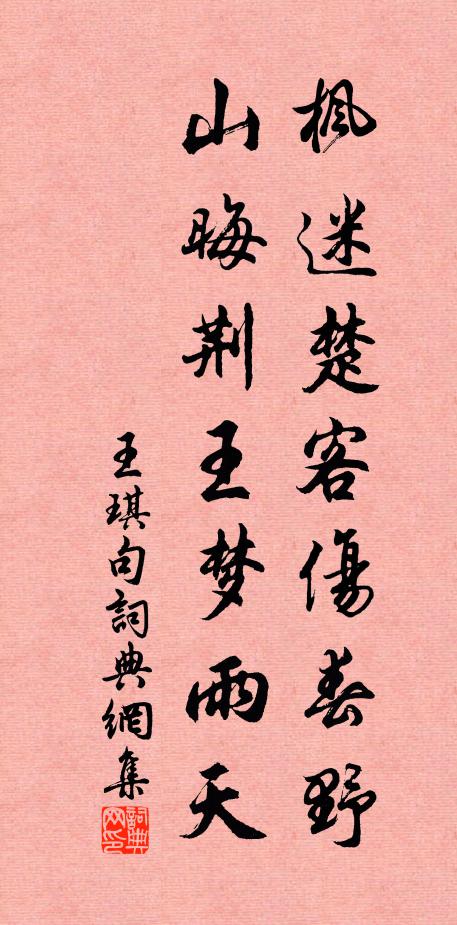 枫迷楚客傷春野
山晦荆王梦雨天
王琪句詞典網集
詞典
网印